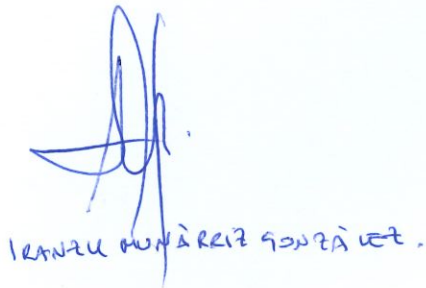 IRANZU MUNÀRRIZ GONZÀLEZ.